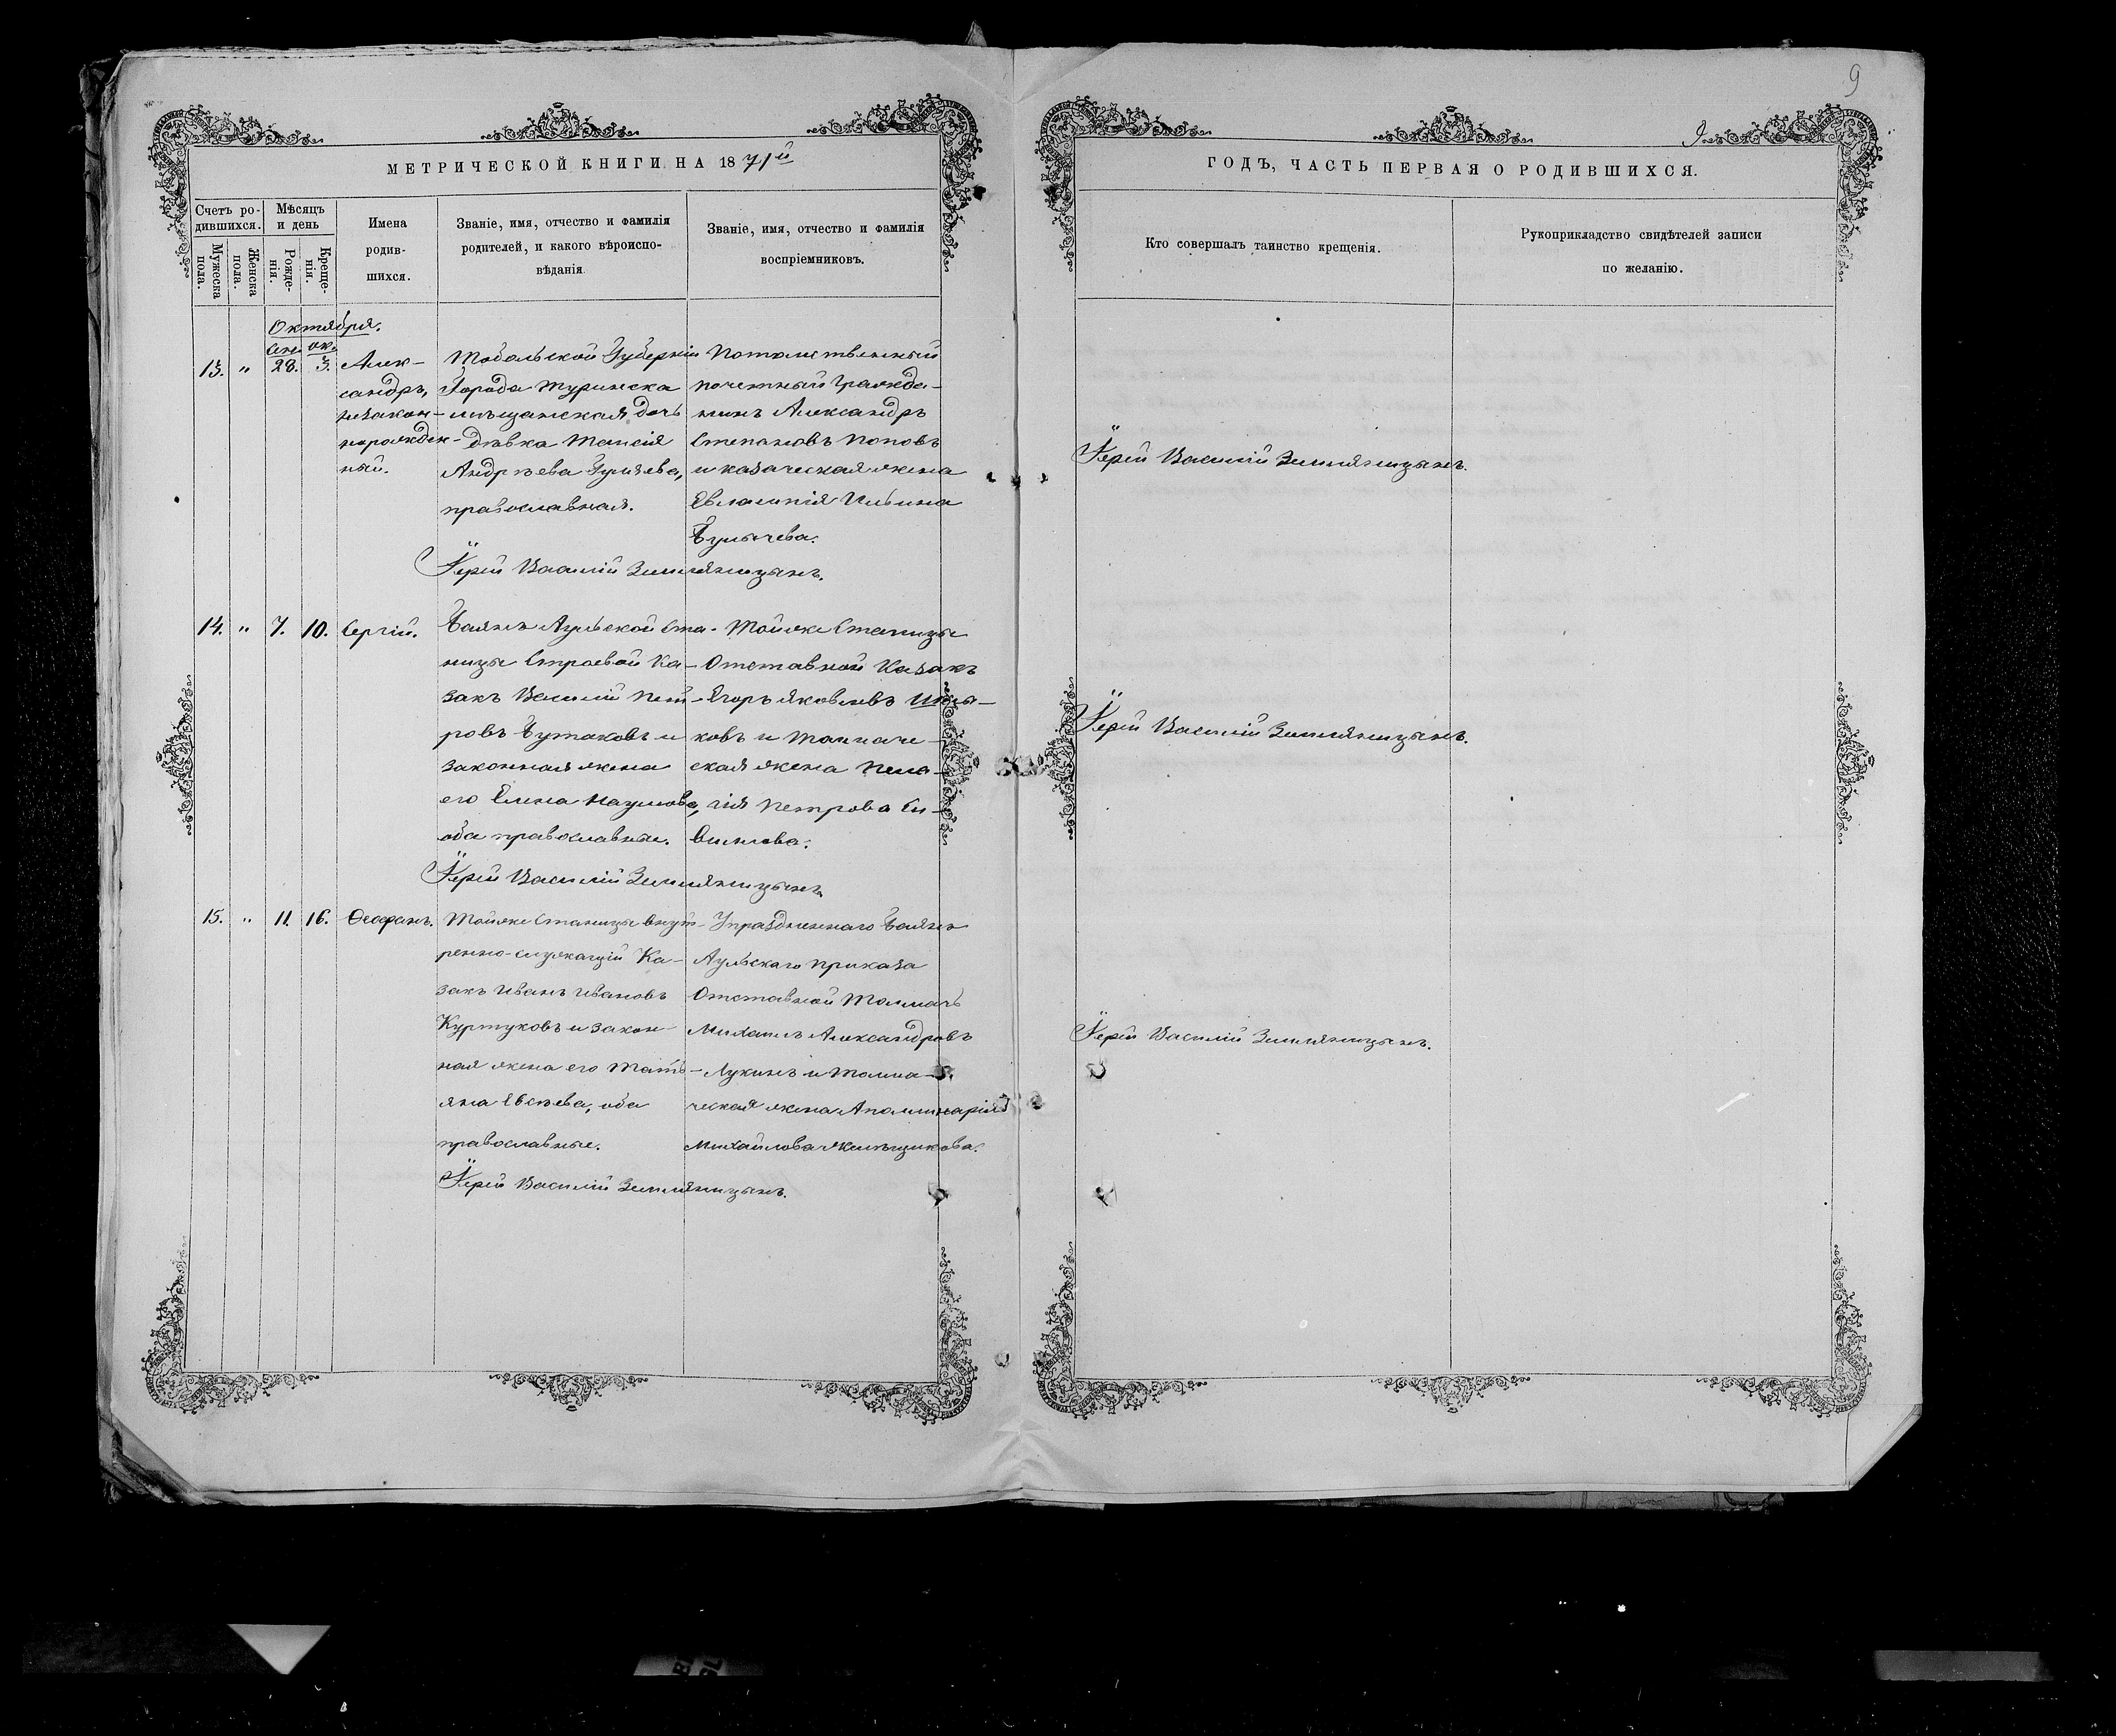 9
9
МЕТРИЧЕСКОЙ КНИГИ НА 1871й
ГОДЪ, ЧАСТЬ ПЕРВАЯ О РОДИВШИХСЯ.
Счетъ ро-
дившихся.
Мужеска пола.
Женска пола.
Мѣсяцъ
и день
Рожде-
нія.
Креще-
нія.
Имена
родив-
шихся.
Званіе, имя, отчество и фамилія
родителей, и какого вѣроиспо-
вѣданія.
Званіе, имя, отчество и фамилія
воспріемниковъ.
Кто совершалъ таинство крещенія.
Рукоприкладство свидѣтелей записи
по желанію.
Октября.
Сен. ок.
13. " 28. 3.
Алек-
сандръ,
незакон-
норожден-
ный.
Тобольской Губерніи
Города Туринска
мѣщанская дочь
дѣвка Таисія
Андрѣева
православная.
Потомственный
почетный Гражда-
нинъ Александръ
Степановъ Поповъ
и казаческая жена
Евлампія Ильина
Булычева.
Іерей Василій Земляницынъ.
Іерей Василій Земляницынъ.
14. " 7. 10. Сергій.
Баянъ Аульской Ста-
ницы Строевой Ка-
закъ Василій Пет-
ровъ Бутаковъ и
законная жена
его Елена Наумова,
оба православные.
Тойже Станицы
Отставной Казакъ
Егоръ Яковлевъ
ковъ и Толмаче-
ская жена Пела-
гія Петрова
Іерей Василій Земляницынъ.
Іерей Василій Земляницынъ.
15. " 11. 16. Ѳеофанъ.
Тойже Станицы внут-
ренно-служащій Ка-
закъ Иванъ Ивановъ
Куртуковъ и закон-
ная жена его Тать-
яна Евсѣева, оба
православные.
Упраздненнаго Баянъ
Аульскаго Приказа
Отставной Толмачъ
Михаилъ Александровъ
Лукинъ и Толма-
ческая жена Аполлинарія
Михайлова Желѣщикова.
Іерей Василій Земляницынъ.
Іерей Василій Земляницынъ.